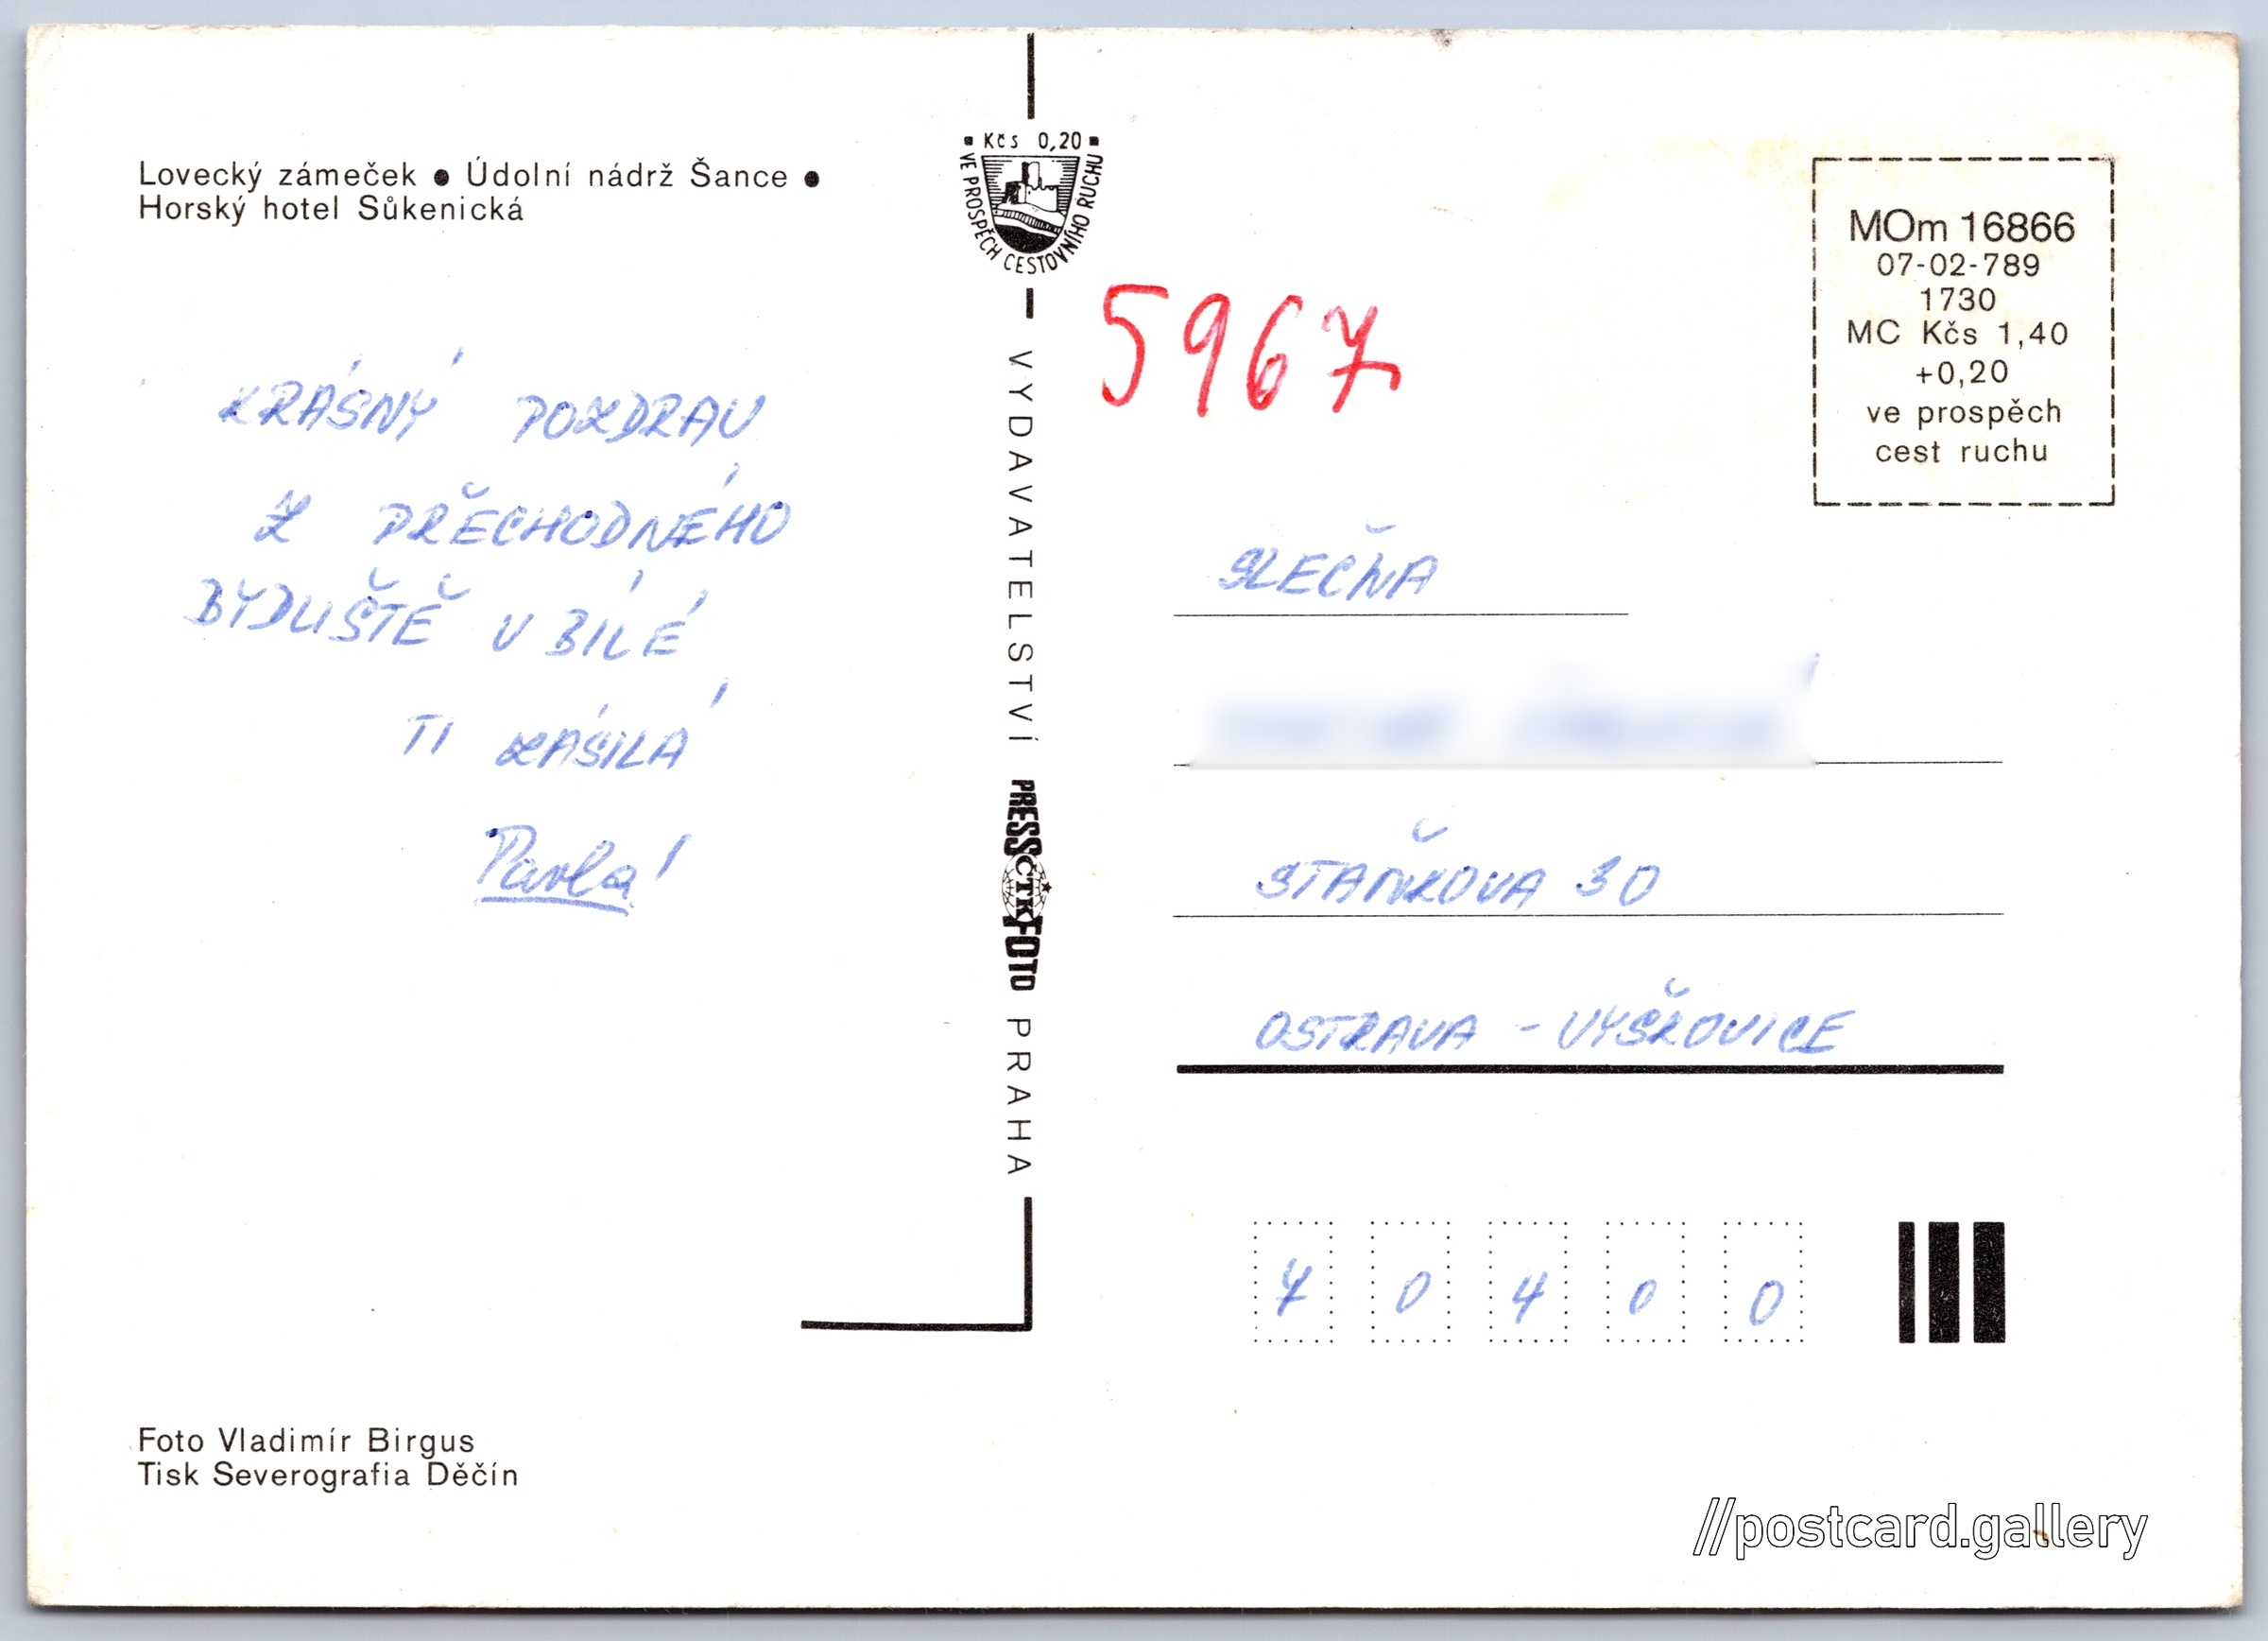 Lovecký zámeček ● Údolní nádrž Šance ●
Horský hotel Sůkenická
KRÁSNÝ POZDRAV
Z PŘECHODNÉHO
BYDLIŠTĚ V BÍLÉ
TI ZASÍLÁ
Pavla!
Foto Vladimír Birgus
Tisk Severografia Děčín
Kčs 0,20
VE PROSPĚCH CESTOVNÍHO RUCHU
VYDAVATELSTVÍ PRESSFOTO PRAHA
ČTK
5967
MOm 16866
07-02-789
1730
MC Kčs 1,40
+0,20
ve prospěch
cest ruchu
SLEČNA
STAŇKOVA 30
OSTRAVA - VYŠKOVICE
70400
//postcard.gallery